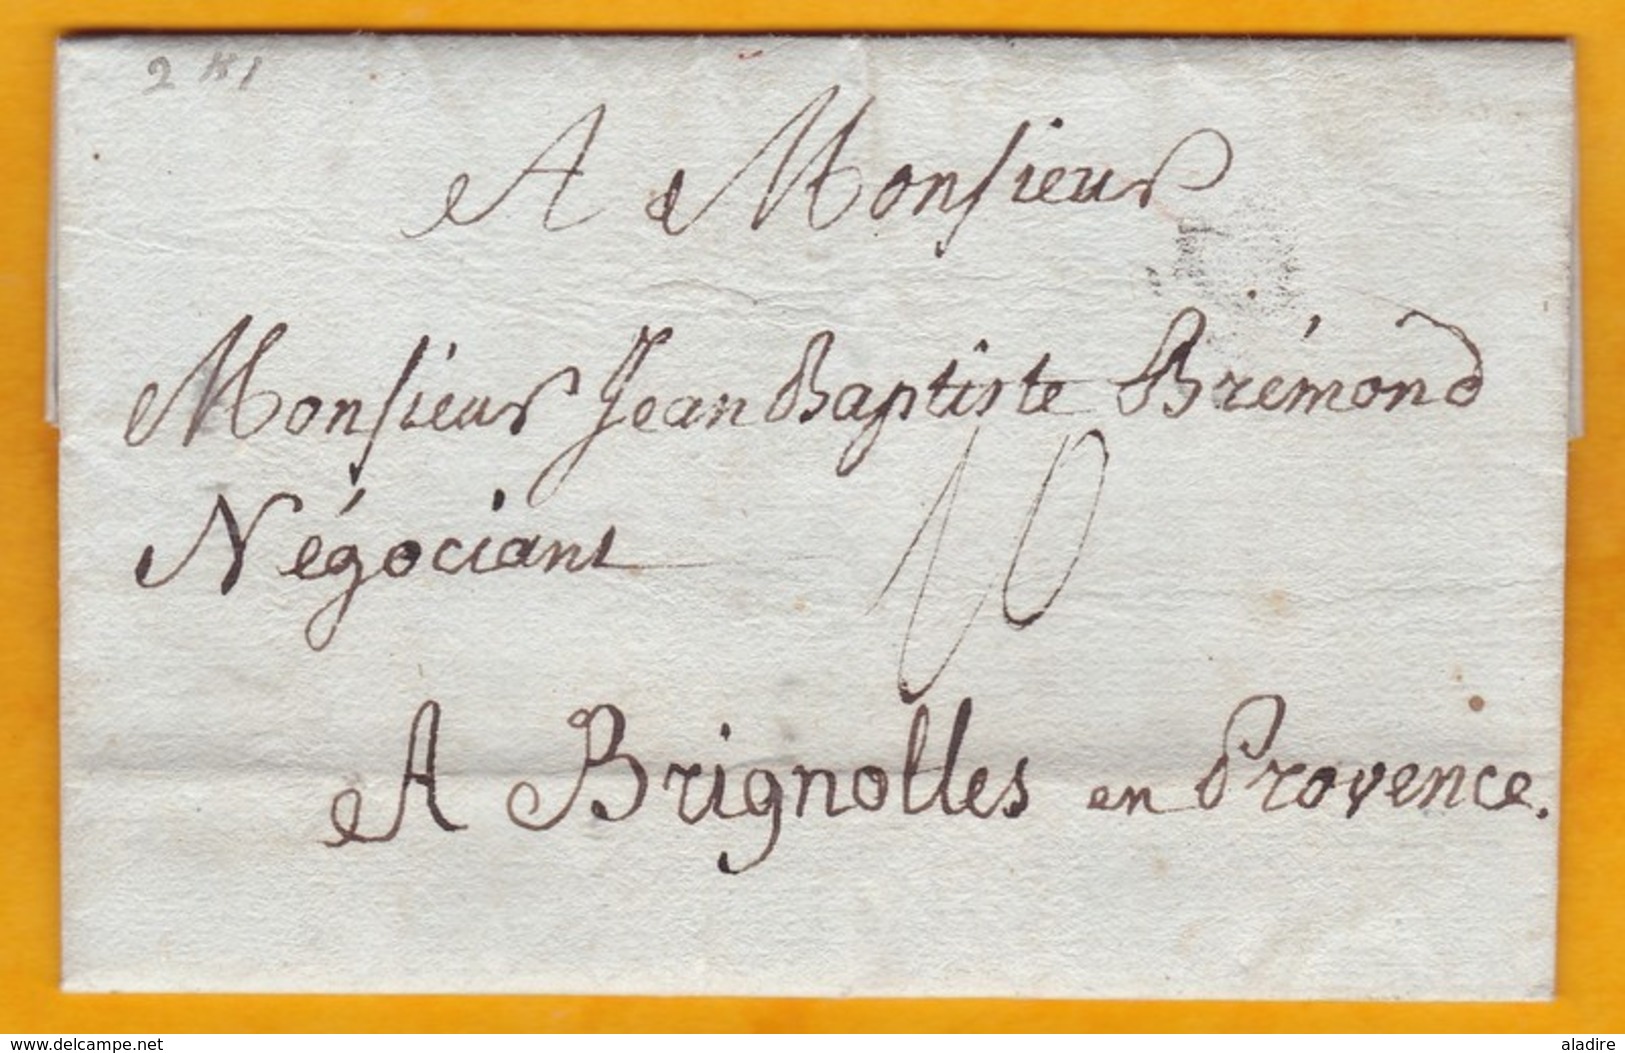 A Monsieur
Monsieur Jean Baptiste Brémond
Négociant
10
A Brignolles en Provence.
www.delcampe.net
aladire